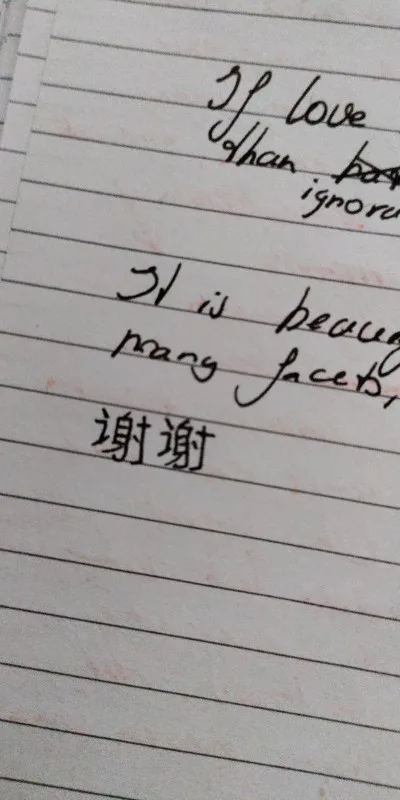 If love
than
ignora
It is beau
many facets,
谢谢